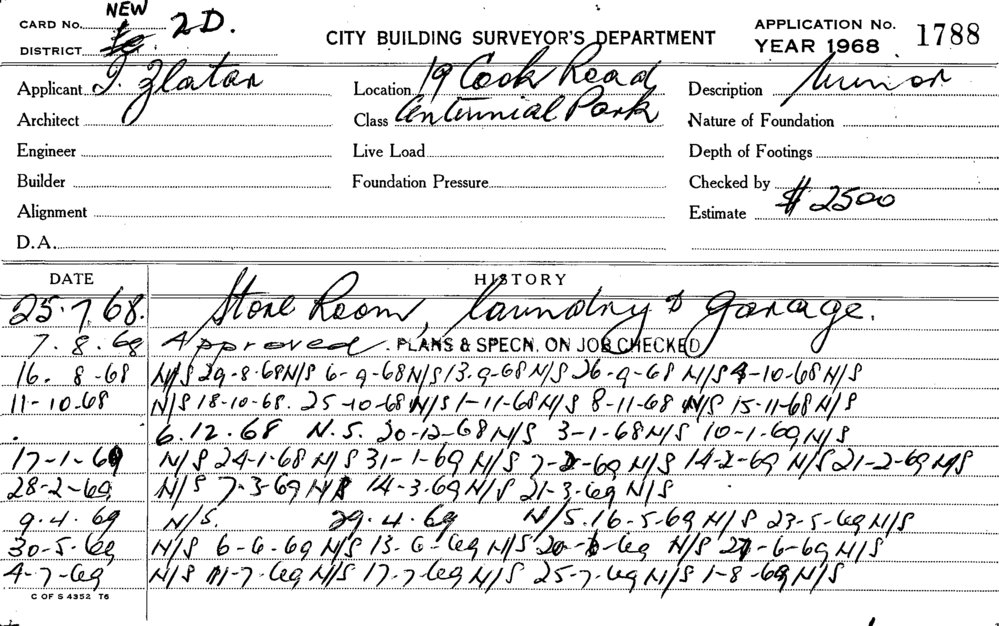 CARD No. NEW 2D.
DISTRICT
CITY BUILDING SURVEYOR'S DEPARTMENT
APPLICATION No. 1788
YEAR 1968
Applicant I. Zlatar Location 19 Cook Road Description Minor
Architect Class Centennial Park Nature of Foundation
Engineer Live Load Depth of Footings
Builder Foundation Pressure Checked by
Alignment Estimate $2500
D.A.
DATE HISTORY
25.7.68. Store Room, laundry & Garage.
7.8.68 Approved. PLANS & SPECN. ON JOB CHECKED
16.8-68 N/S 29-8-68 N/S 6-9-68 N/S 13.9-68 N/S 26-9-68 N/S 4-10-68 N/S
11-10.68 N/S 18-10-68. 25-10-68 N/S 1-11-68 N/S 8-11-68 N/S 15-11-68 N/S
6.12.68 N.S. 20-12-68 N/S 3-1-68 N/S 10-1-69 N/S
17-1-69 N/S 24-1-68 N/S 31-1-69 N/S 7-2-69 N/S 14-2-69 N/S 21-2-69 N/S
28-2-69 N/S 7-3-69 N/S 14-3-69 N/S 21-3-69 N/S
9.4.69 N/S. 29.4.69 N/S. 16-5-69 N/S 23-5-69 N/S
30-5-69 N/S 6-6-69 N/S 13-6-69 N/S 20-6-69 N/S 27-6-69 N/S
4-7-69 N/S 11-7-69 N/S 17-7-69 N/S 25-7-69 N/S 1-8-69 N/S
C OF S 4352 T6